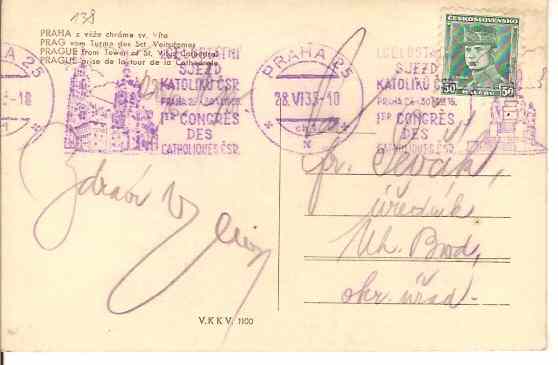 138
PRAHA z věže chrámu sv. Víta
PRAG vom Turme des Sct. Veitsdomes
PRAGUE from Tower of St. Vitus Cathedral
PRAGUE prise de la tour de la Cathédrale
PRAHA 25
-18
SJEZD
KATOLÍKŮ ČSR.
PRAHA
1ER CONGRÈS
DES
CATHOLIQUES ČSR.
PRAHA 25
28.VI 35-10
SJEZD
KATOLÍKŮ ČSR
PRAHA
1ER CONGRÈS
DES
CATHOLIQUES ČSR.
ČESKOSLOVENSKO
50 50
Zdraví
úředník
Uh. Brod,
okr. úřad.
V.K.K.V. 1100